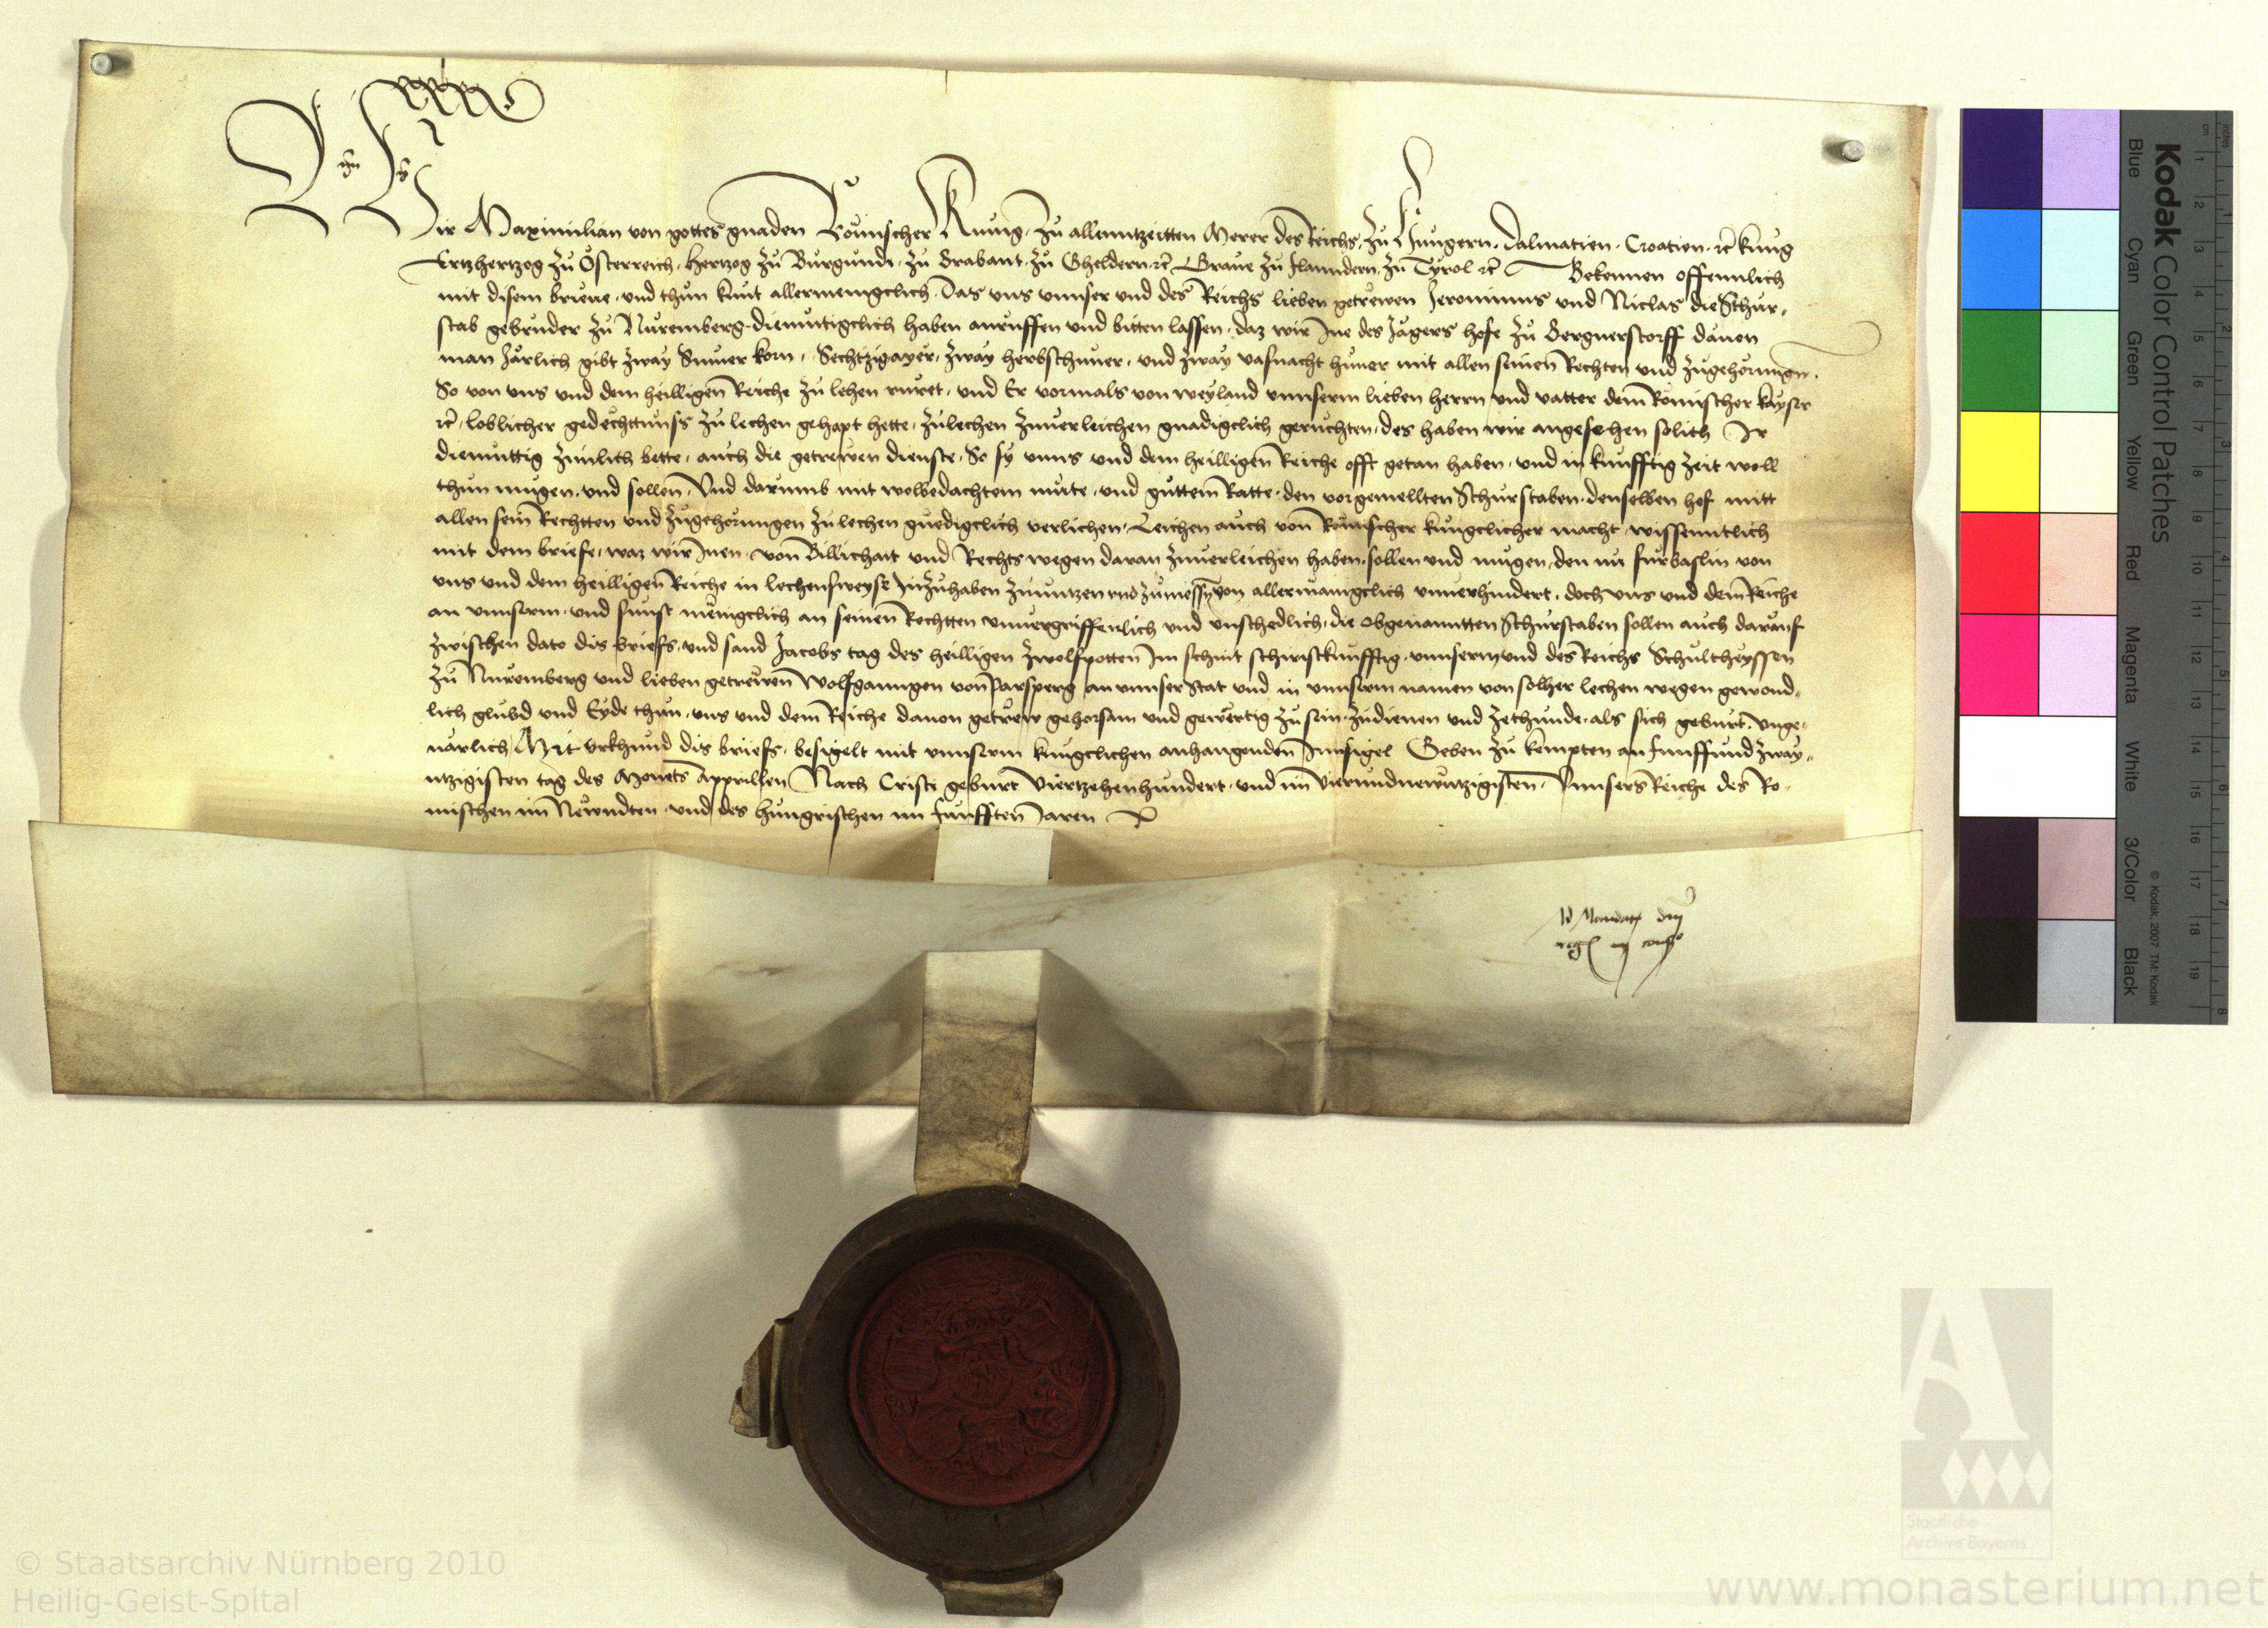 Wir Maximilian von gottes gnaden Römischer Kunig, zu allenntzeitten Merer des Reichs, zu Hungern, Dalmatien, Croatien, rc̄ kunig
Ertzhertzog zu Österreich, Hertzog zu Burgundi, zu Brabant, zu Gheldern rc̄ Graue zu flanndern, zu Tyrol rc̄ Bekennen offennlich
mit disem brieue, und thun kunt allermenigclich, Das uns unnser und des Reichs lieben getrewen Jeronimus und Niclas die Schur,
stab gebruder zu Nuremberg, diemutigclich haben anruffen und bitten lassen, daz wir Ine des Jägers hofe zu Bergnerstorff dauon
man Järlich gibt zway Sumer korn, Sechtzigayer, zway herbschuner, und zway vasnacht huner mit allen seinen Rechten und zugehörungn.
So von uns und dem heilligen Reiche zu lehen ruret, und Er vormals von weyland unnserm lieben herrn und vatter dem Römischer kayser
rc̄, loblicher gedechttnuss zu lechen gehapt hette, zulechen zuuerleichen gnadigclich geruchten, des haben wir angesehen solich Ir
diemuttig zimlich bette, auch die getrewen dienste, So sy unns und dem heilligen Reiche offt getan haben, und in kunfftig zeit woll
thun mugen, und sollen, Und darumb mit wolbedachtem mute, und guttem Ratte, den vorgemellten Schurstaben, denselben hof mitt
allen sein Rechtten und zugehorungen zu lechen gnedigclich verlichen, Leichen auch von Römischer kungclicher macht wissenntlich
mit dem briefe, waz wir Inen von Billichait und Rechts wegen daran zuuerleichen haben, sollen und mugen, den nu furbaslin von
uns und dem heilligen Reiche in lechensweyse Inzuhaben zunutzen und zuniessen von allermanigclich unuerhindert, doch uns und dem Reiche
an unnserm, und sunst menigclich an seinen Rechtten unuergriffenlich und unschedlich, die obgenanntten Schurstaben sollen auch darauf
zwischen dato dis briefs, und sand Jacobs tag des heilligen zwolfpotten Im schnit schiristkunfftig, unnserm und des Reichs Schultheyssen
zu Nuremberg und lieben getrewen Wolfganngen von Parsperg an unnser stat und in unnserm namen von solher lechen wegen gewond,
lich glubd und Eyde thun, uns und dem Reiche dauon getrew gehorsam und gewertig zu sein, zudienen und zethunde, als sich geburt, unge,
uärlich, Mit urkhund dis briefs, besigelt mit unnserm kungclichen anhangenden Innsigel Geben zu kempten an funffund zway,
ntzigisten tag des Monets Apprillen Nach Cristi geburt Viertzehenhundert, und im Vierundnewntzigisten, Unnsers Reiche des Ro,
mischen im Newndten, und des hungrischen im funfften Jaren
Ad Mandatū dn̄i
regis in consi°
Kodak Color Control Patches
Blue Cyan Green Yellow Red Magenta White 3/Color Black
© Kodak, 2007 TM: Kodak
© Staatsarchiv Nürnberg 2010
Heilig-Geist-Spital
Staatliche
Archive Bayerns
www.monasterium.net